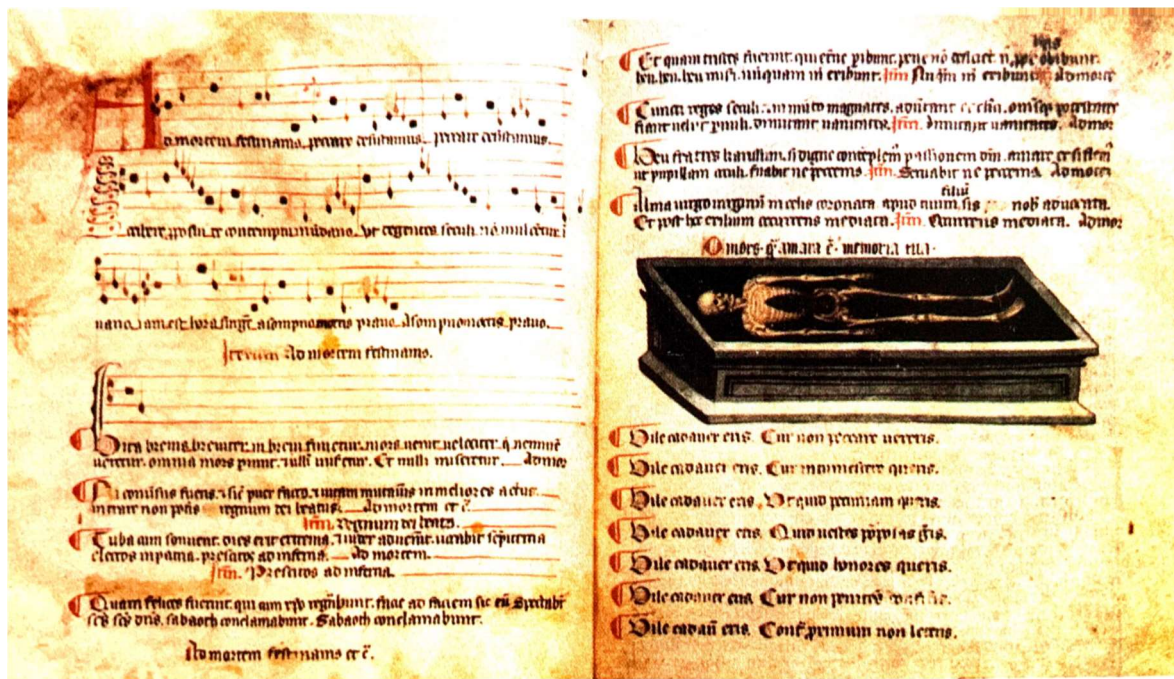 Ad mortem festinamus peccare desistamus. peccare desistamus.
scribere proposui de contemptu mundano. ut degentes seculi non mulcentur i
uano. iam est hora surgere a sompno mortis prauo. A sompno mortis prauo.
Iterum Ad mortem festinamus.
Vita breuis breuiter in breui finietur. mors uenit uelociter q neminem
ueretur. omnia mors perimit. & nulli miseretur. Et nulli miseretur Ad mor
Ni conuersus fueris. & sicut puer factus. & uitam mutaueris in meliores actus.
intrare non poteris regnum dei beatus. Ad mortem et c.
Itm. Regnum dei beatus.
Tuba cum sonuerit. dies erit extrema. & iudex aduenerit. uocabit sempiterna
electos in patria. prescitos ad inferna. Ad mortem.
Itm. Prescitos ad inferna.
Quam felices fuerint. qui cum xpo regnabunt. facie ad faciem sic eum spectabunt
scs scs dns. sabaoth conclamabunt. Sabaoth conclamabunt.
Ad mortem festinamus et c.
Et quam tristes fuerint. qui eterne peribunt. pene non deficient. n obibunt.
heu. heu. heu miseri. nunquam in exibunt. Itm Nunquam in exibunt. Ad morte
Cuncti reges seculi. & in mundo magnates. aduertant et clerici. omnesque potestates
fiant uelut paruuli. dimittant uanitates. Itm. Dimittant uanitates. Ad mor
Heu fratres karissimi. si digne contemplemur passionem domini. amare et si flemus
ut pupillam oculi. seruabit ne peccemus. Itm. Seruabit ne peccemus Ad morte
Alma uirgo uirginum in celis coronata. apud tuum filium. sis nobis aduocata.
Et post hoc exilium occurrens mediata. Itm. Occurrens mediata. Ad mor
O mors q amara e memoria tua.
Vile cadauer eris. Cur non peccare uereris.
Vile cadauer eris. Cur intumescere queris.
Vile cadauer eris. Vt quid pecuniam queris.
Vile cadauer eris. Quid uestes pomposas geris.
Vile cadauer eris. Vt quid honores queris.
Vile cadauer eris. Cur non penitens
Vile cadauer eris. Contra proximum non leteris.